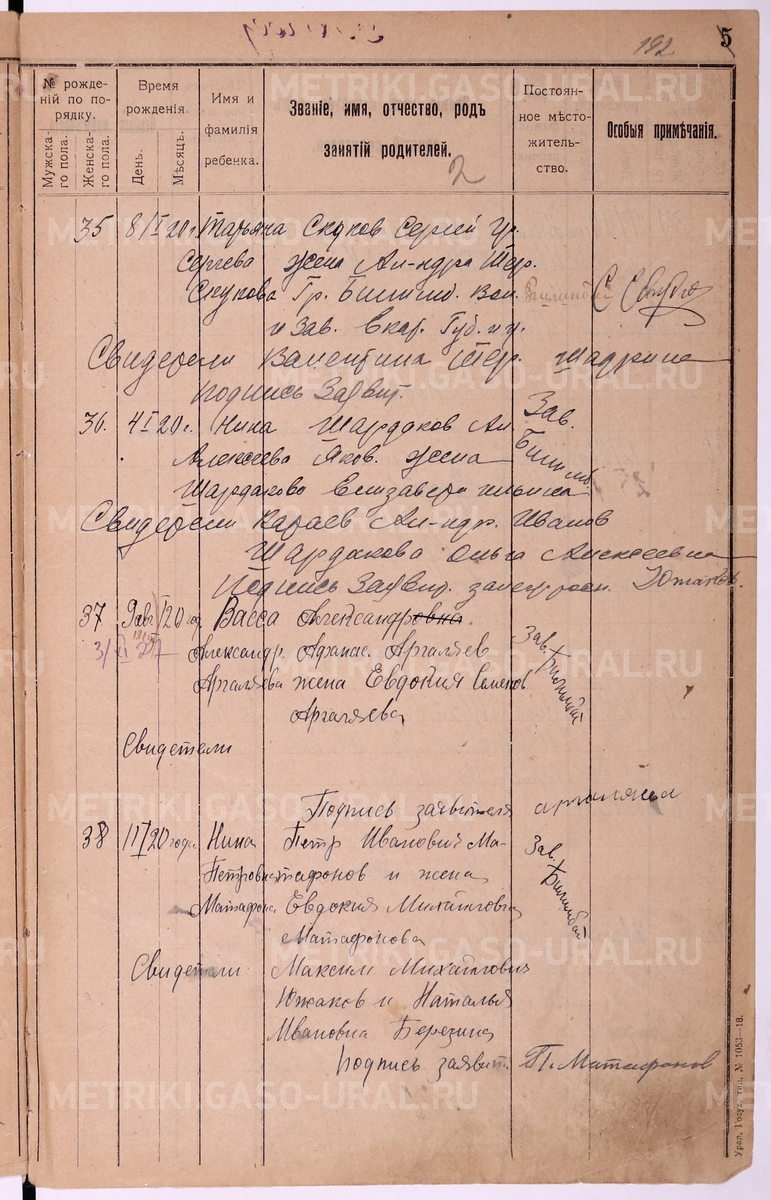 192 5
№ рожде-
ній по по-
рядку.
Мужска-
го пола.
Женска-
го пола.
Время
рожденія.
День.
Мѣсяцъ.
Имя и
фамилія
ребенка.
Званіе, имя, отчество, родъ
занятій родителей.
2
Постоян-
ное мѣсто-
житель-
ство.
Особыя примѣчанія.
35 8/I 20 г. Татьяна Скуков Сергей Гр.
Сергеева жена Ал-ндра Тер.
Скукова Гр. Билимб. Вол. Билимбай
и Зав. Екат. Губ. и у.
Свидетели Валентина Тер. Шадрина
подпись Заявит.
36. 4 I 20 г. Нина Шардаков Ал. Зав.
Алексеева Яков. жена Билимб.
Шардакова Елизавета Ильина
Свидетели Караев Ал-ндр. Иванов
Шардакова Ольга Алексеевна
Подпись Заявит. Южаков.
37 9 янв./20 год Васса Александровна.
3/XI
Александр. Афанас. Аргаляев Зав. Билимбай
Аргаляева жена Евдокия Семенов
Аргаляева
Свидетели
Подпись заявителя аргаляева
38 11/I 20 годa. Нина Петр Иванович Ма- Зав. Билимбай
Петровна тафонов и жена
Матафонов. Евдокия Михайловна
Матафонова
Свидетели: Максим Михайлович
Южаков и Наталья
Ивановна Березина
подпись заявит. П. Матафонов
Урал. Госуд. тип. № 1053—18.
METRIKI.GASO-URAL.RU